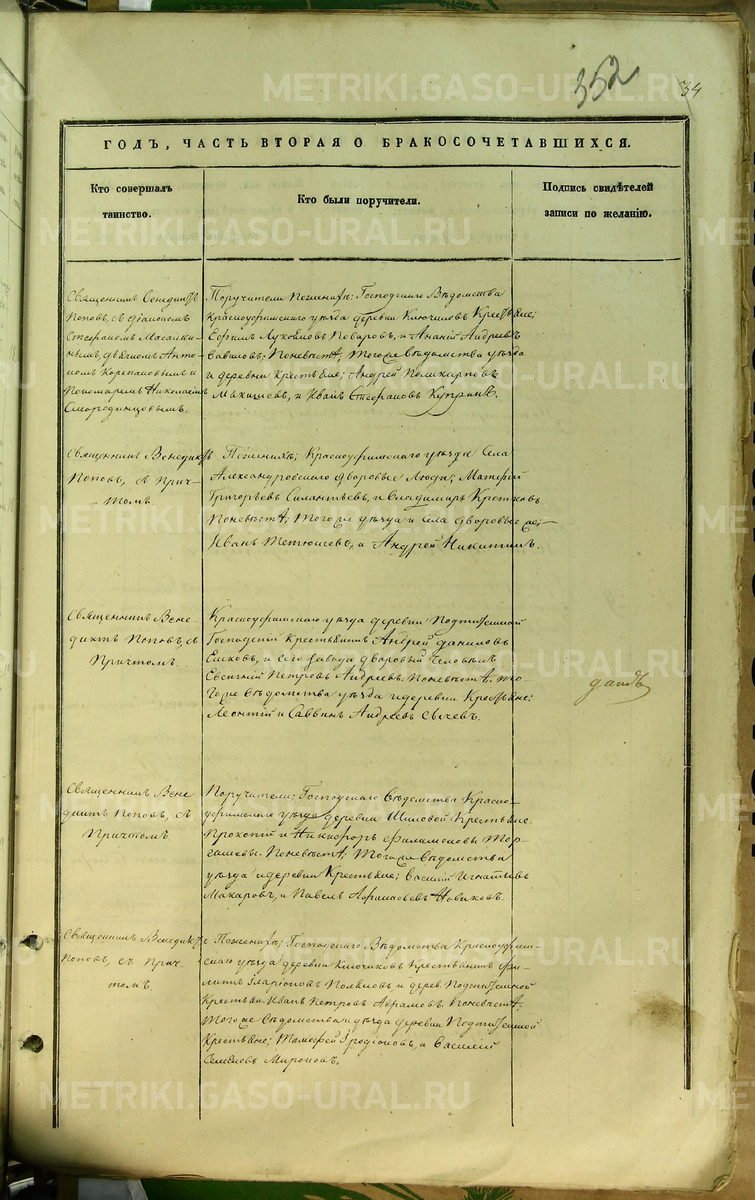 352
34
ГОДЪ, ЧАСТЬ ВТОРАЯ О БРАКОСОЧЕТАВШИХСЯ.
Кто совершалъ
таинство.
Кто были поручители.
Подпись свидѣтелей
записи по желанію.
Священникъ Венедиктъ
Поповъ, съ діакономъ
Стефаномъ
дьячкомъ Анто
номъ Корепановымъ и
Пономаремъ Николаемъ
Смородинцовымъ.
Поручители По женихѣ: Господскаго Вѣдомства
Красноуфимскаго уѣзда деревни Ключиковъ Крестьяне;
Ефимъ Поваровъ, и Ананій Андреевъ
Савиловъ; По невѣстѣ, того же Вѣдомства уѣзда
и деревни Крестьяне; Андрей Поликарповъ
и Иванъ Стефановъ Купринъ.
Священникъ Венедиктъ
Поповъ, съ Прич-
томъ
По женихѣ; Красноуфимскаго уѣзда Села
Александровскаго дворовые Люди; Матфей
Григорьевъ Силантьевъ, и Владимиръ Кротковъ
По невѣстѣ; Того же уѣзда и села дворовые
Иванъ Тетюшевъ, и Андрей Никитинъ.
Священникъ Вене-
диктъ Поповъ, съ
Причтомъ
Красноуфимскаго уѣзда деревни
Господскій Крестьянинъ Андрей Даниловъ
и Сего завода дворовый Человѣкъ
Евсигній Петровъ Андреевъ. По невѣстѣ. То-
го же Вѣдомства уѣзда и деревни Крестьяне;
Леонтій и Саввинъ Андреевы Сычевъ.
Священникъ Вене
диктъ Поповъ, съ
Причтомъ
Поручители; Господскаго Вѣдомства Красно-
уфимскаго уѣзда деревни Шиловой Крестьяне.
Прокопій и Никифоръ Филимоновы Тор-
гашевы. По невѣстѣ; Того же Вѣдомства
уѣзда и деревни Крестьяне; Василій Игнатьевъ
Макаровъ, и Павелъ Афанасьевъ Новиковъ.
Священникъ Венедиктъ
Поповъ, съ Прич
томъ
По женихѣ; Господскаго Вѣдомства Красноуфим-
скаго уѣзда деревни Ключиковъ Крестьянинъ Фи-
липъ Иларіоновъ и дерев.
Крестьян. Иванъ Петровъ Аврамовъ. По невѣстѣ.
Того же Вѣдомства и уѣзда деревни
Крестьяне; Тимофей Іродіоновъ, и Василій
Семеновъ Мироновъ.
METRIKI.GASO-URAL.RU